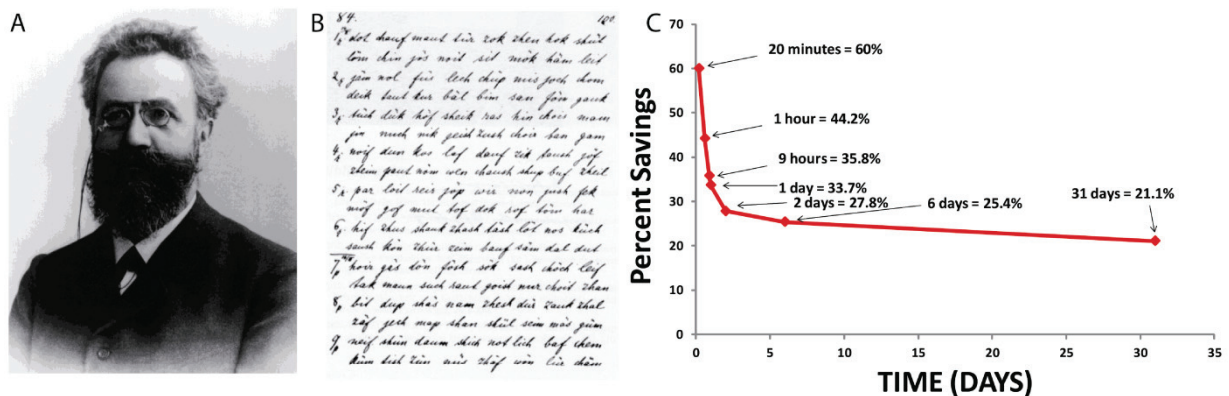 A
B
84.
dot hauf maut tür zok zhen hok shül
töm chin jös noit sit mök häm leit
2. jäm nol füs lech chüp mis joch chom
deik taut kur bäl bim san föm gauk
3. tüsh dük höf sheik ras hin chois mam
jin nuch nik jeish zush chois ban gam
4. noif dun kos laf dauf zik taush jöf
zheim paut nöm wen chaush shup buf zheil
5. par loit reir jöp wir non jush fek
möf gof mul bof dok rof töm har
6. hif zhus shauk zhash täsh löt nos küch
saush kön zhür zeim bauf säm dal dut
7. hoir gäs tön fösh sök sash chöch leif
tak maun such raut goist nur choit zhan
8. bit dup shäs nam zhesh dür zauk zhal
zäf jesh map shan shül seim mäs güm
9. neif shün daum shich not lich baf chem
küm tish zün müs zhäf wön lür chäm
C
Percent Savings
70
60
50
40
30
20
10
0
20 minutes = 60%
1 hour = 44.2%
9 hours = 35.8%
1 day = 33.7%
2 days = 27.8%
6 days = 25.4%
31 days = 21.1%
0 5 10 15 20 25 30 35
TIME (DAYS)